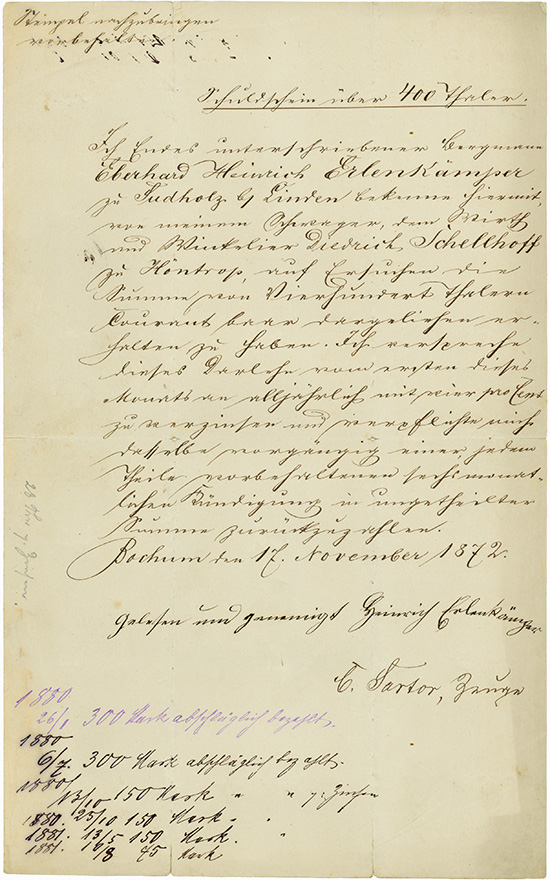 Stempel nachzubringen
vorbehalten
Schuldschein über 400 Thaler.
Ich Endes unterschriebener Bergmann
Eberhard Heinrich Erlenkämper
zu Sudholz b/ Linden bekenne hiermit,
von meinem Schwager, dem Wirth
und Winkelier Diedrich Schellhoff
zu Höntrop, auf Ersuchen die
Summe von Vierhundert Thalern
Courant baar dargeliehen er-
halten zu haben. Ich verspreche
dieses Darlehn vom ersten dieses
Monats an alljährlich mit vier pro Cent
zu verzinsen und verpflichte mich
dasselbe vorgängig einer jedem
Theile vorbehaltenen sechsmonat-
lichen Kündigung in ungetheilter
Summe zurückzuzahlen.
Bochum den 17. November 1872.
Gelesen und genemigt Heinrich Erlenkämper
C. Sartor, Zeuge
1880
26/1 300 Mark abschläglich bezahlt.
1880
6/7 300 Mark abschläglich bezahlt.
1880
13/10 150 Mark " "
1880. 25/10 150 Mark. "
1881. 13/5 150 Mark. "
1881. 16/8 45 Mark